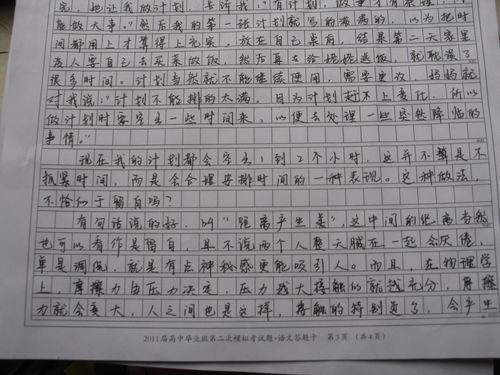 完，她让我做计划，去游我："有计划，做事才有条理，才
能做大事。"然后我的第一张计划就写的满满的，以为把时
间都用上才算得上充实，放在自己桌前，结果第二天家里
老人要自己去买菜做饭，然后再去给送饭，就耽误了
很多时间。计划当然就不能继续使用，需要更改，妈妈就
对我说："计划不能排的太满，因为计划赶不上变化，所以
做计划时要空出一些时间来，以便去处理一些突然降临的
事情。"
现在我的计划都会空出1到2个小时，这并不算是不
抓紧时间，而是合理安排时间的一种表现。这种做法，
不恰似于留白吗？
有句话说的好，叫"距离产生美"，这中间的距离当然
也可以看作是留白，且不说两个人整天腻在一起会厌倦，
单是调侃，就是有点神秘感更能吸引人。而且，在物理学
上，摩擦力由压力决定，压力越大接触的就越充分，摩擦
力就会变大，人之间也是这样，接触的特别近了，会产生
2011届高中毕业班第二次模拟考试题·语文答题卡 第3页 （共4页）